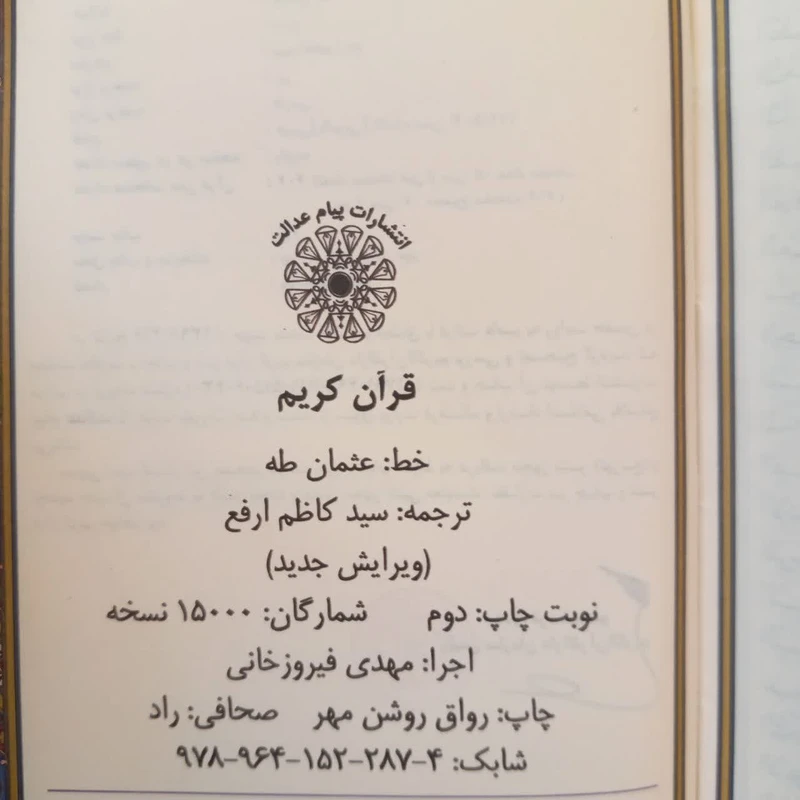 انتشارات پیام عدالت
قرآن کریم
خط: عثمان طه
ترجمه: سید کاظم ارفع
(ویرایش جدید)
نوبت چاپ: دوم شمارگان: ۱۵۰۰۰ نسخه
اجرا: مهدی فیروزخانی
چاپ: رواق روشن مهر صحافی: راد
شابک: ۴-۲۸۷-۱۵۲-۹۶۴-۹۷۸